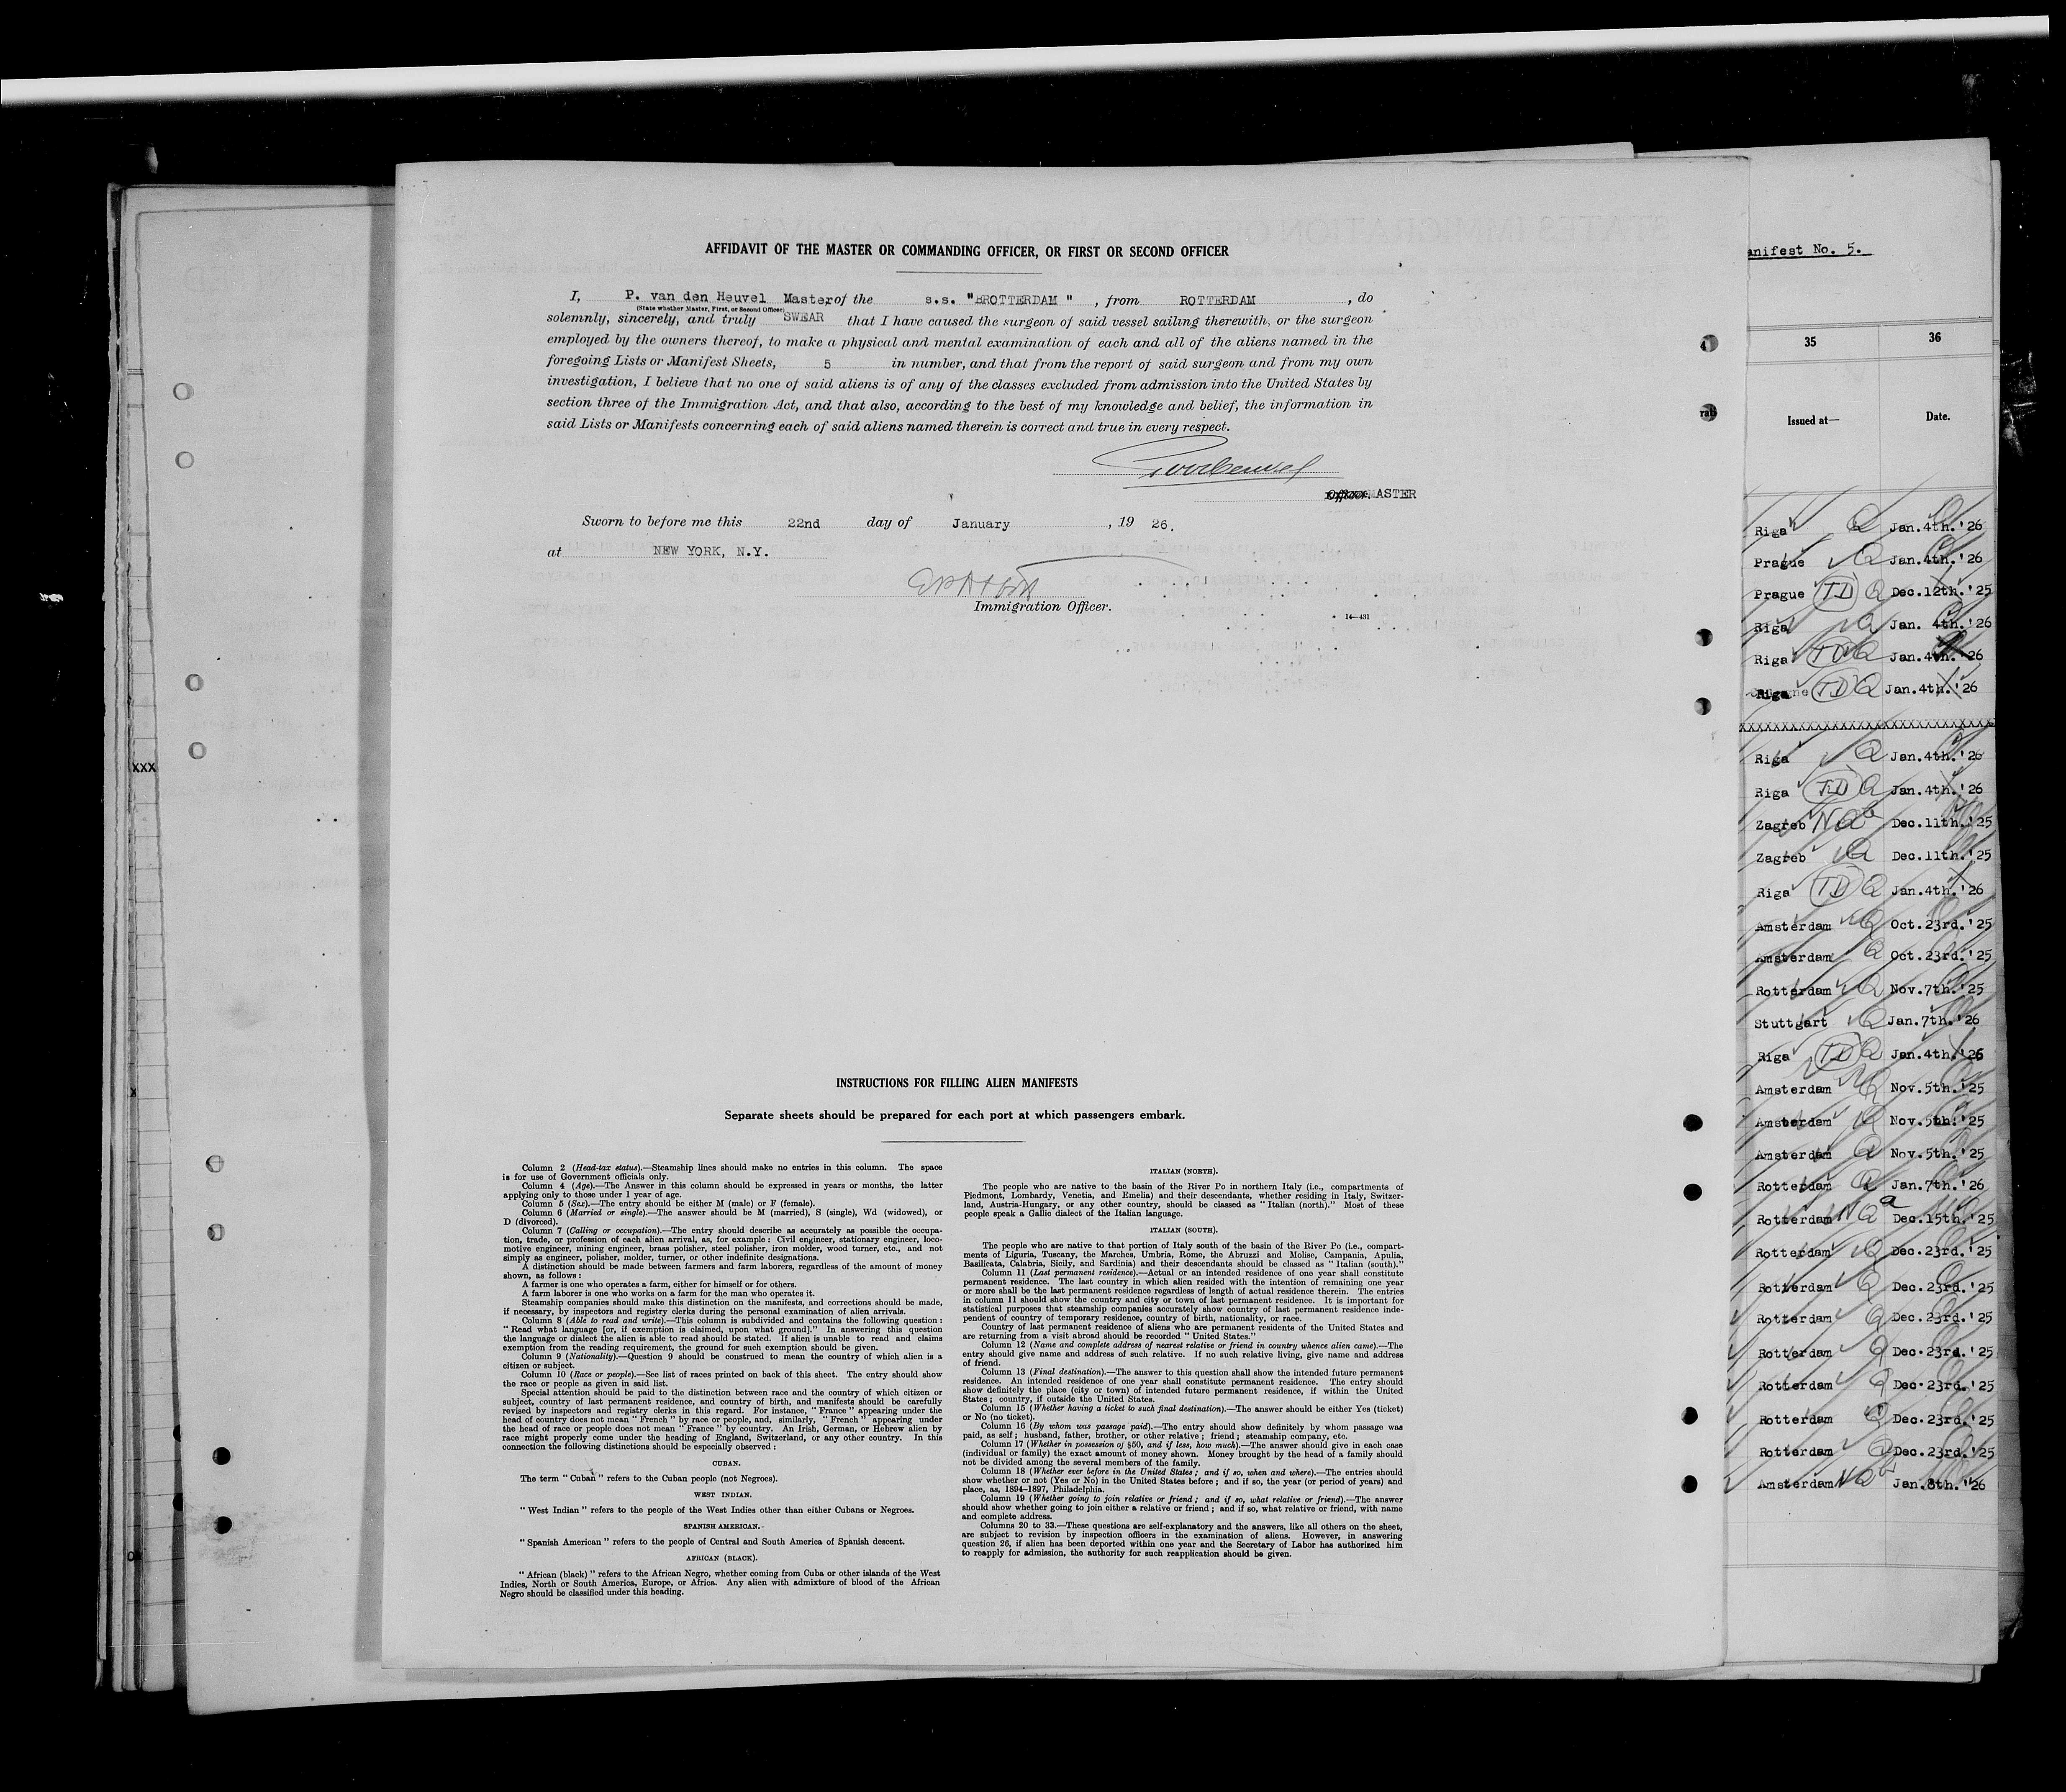 AFFIDAVIT OF THE MASTER OR COMMANDING OFFICER, OR FIRST OR SECOND OFFICER
I, P. van den Heuvel Master, of the s.s. "ROTTERDAM ", from ROTTERDAM, do
(State whether Master, First, or Second Officer)
solemnly, sincerely, and truly SWEAR that I have caused the surgeon of said vessel sailing therewith, or the surgeon
employed by the owners thereof, to make a physical and mental examination of each and all of the aliens named in the
foregoing Lists or Manifest Sheets, 5 in number, and that from the report of said surgeon and from my own
investigation, I believe that no one of said aliens is of any of the classes excluded from admission into the United States by
section three of the Immigration Act, and that also, according to the best of my knowledge and belief, the information in
said Lists or Manifests concerning each of said aliens named therein is correct and true in every respect.
MASTER
Sworn to before me this 22nd day of January, 19 26.
at NEW YORK, N.Y.
Immigration Officer.
14—431
INSTRUCTIONS FOR FILLING ALIEN MANIFESTS
Separate sheets should be prepared for each port at which passengers embark.
Column 2 (Head-tax status).—Steamship lines should make no entries in this column. The space
is for use of Government officials only.
Column 4 (Age).—The Answer in this column should be expressed in years or months, the latter
applying only to those under 1 year of age.
Column 5 (Sex).—The entry should be either M (male) or F (female).
Column 6 (Married or single).—The answer should be M (married), S (single), Wd (widowed), or
D (divorced).
Column 7 (Calling or occupation).—The entry should describe as accurately as possible the occupa-
tion, trade, or profession of each alien arrival, as, for example: Civil engineer, stationary engineer, loco-
motive engineer, mining engineer, brass polisher, steel polisher, iron molder, wood turner, etc., and not
simply as engineer, polisher, molder, turner, or other indefinite designations.
A distinction should be made between farmers and farm laborers, regardless of the amount of money
shown, as follows:
A farmer is one who operates a farm, either for himself or for others.
A farm laborer is one who works on a farm for the man who operates it.
Steamship companies should make this distinction on the manifests, and corrections should be made,
if necessary, by inspectors and registry clerks during the personal examination of alien arrivals.
Column 8 (Able to read and write).—This column is subdivided and contains the following question:
"Read what language [or, if exemption is claimed, upon what ground]." In answering this question
the language or dialect the alien is able to read should be stated. If alien is unable to read and claims
exemption from the reading requirement, the ground for such exemption should be given.
Column 9 (Nationality).—Question 9 should be construed to mean the country of which alien is a
citizen or subject.
Column 10 (Race or people).—See list of races printed on back of this sheet. The entry should show
the race or people as given in said list.
Special attention should be paid to the distinction between race and the country of which citizen or
subject, country of last permanent residence, and country of birth, and manifests should be carefully
revised by inspectors and registry clerks in this regard. For instance, "France" appearing under the
head of country does not mean "French" by race or people, and, similarly, "French" appearing under
the head of race or people does not mean "France" by country. An Irish, German, or Hebrew alien by
race might properly come under the heading of England, Switzerland, or any other country. In this
connection the following distinctions should be especially observed:
CUBAN.
The term "Cuban" refers to the Cuban people (not Negroes).
WEST INDIAN.
"West Indian" refers to the people of the West Indies other than either Cubans or Negroes.
SPANISH AMERICAN.
"Spanish American" refers to the people of Central and South America of Spanish descent.
AFRICAN (BLACK).
"African (black)" refers to the African Negro, whether coming from Cuba or other islands of the West
Indies, North or South America, Europe, or Africa. Any alien with admixture of blood of the African
Negro should be classified under this heading.
ITALIAN (NORTH).
The people who are native to the basin of the River Po in northern Italy (i.e., compartments of
Piedmont, Lombardy, Venetia, and Emelia) and their descendants, whether residing in Italy, Switzer-
land, Austria-Hungary, or any other country, should be classed as "Italian (north)." Most of these
people speak a Gallic dialect of the Italian language.
ITALIAN (SOUTH).
The people who are native to that portion of Italy south of the basin of the River Po (i.e., compart-
ments of Liguria, Tuscany, the Marches, Umbria, Rome, the Abruzzi and Molise, Campania, Apulia,
Basilicata, Calabria, Sicily, and Sardinia) and their descendants should be classed as "Italian (south)."
Column 11 (Last permanent residence).—Actual or an intended residence of one year shall constitute
permanent residence. The last country in which alien resided with the intention of remaining one year
or more shall be the last permanent residence regardless of length of actual residence therein. The entries
in column 11 should show the country and city or town of last permanent residence. It is important for
statistical purposes that steamship companies accurately show country of last permanent residence inde-
pendent of country of temporary residence, country of birth, nationality, or race.
Country of last permanent residence of aliens who are permanent residents of the United States and
are returning from a visit abroad should be recorded "United States."
Column 12 (Name and complete address of nearest relative or friend in country whence alien came).—The
entry should give name and address of such relative. If no such relative living, give name and address
of friend.
Column 13 (Final destination).—The answer to this question shall show the intended future permanent
residence. An intended residence of one year shall constitute permanent residence. The entry should
show definitely the place (city or town) of intended future permanent residence, if within the United
States; country, if outside the United States.
Column 15 (Whether having a ticket to such final destination).—The answer should be either Yes (ticket)
or No (no ticket).
Column 16 (By whom was passage paid).—The entry should show definitely by whom passage was
paid, as self; husband, father, brother, or other relative; friend; steamship company, etc.
Column 17 (Whether in possession of $50, and if less, how much).—The answer should give in each case
(individual or family) the exact amount of money shown. Money brought by the head of a family should
not be divided among the several members of the family.
Column 18 (Whether ever before in the United States; and if so, when and where).—The entries should
show whether or not (Yes or No) in the United States before; and if so, the year (or period of years) and
place, as, 1894-1897, Philadelphia.
Column 19 (Whether going to join relative or friend; and if so, what relative or friend).—The answer
should show whether going to join either a relative or friend; and if so, what relative or friend, with name
and complete address.
Columns 20 to 33.—These questions are self-explanatory and the answers, like all others on the sheet,
are subject to revision by inspection officers in the examination of aliens. However, in answering
question 26, if alien has been deported within one year and the Secretary of Labor has authorized him
to reapply for admission, the authority for such reapplication should be given.
anifest No. 5.
35 36
Issued at— Date.
Riga Q Jan.4th.'26
Prague Q Jan.4th.'26
Prague TD Q Dec.12th.'25
Riga Q Jan. 4th.'26
Riga TD Q Jan.4th.'26
Riga TD Q Jan.4th.'26
XXXXXXXXXXXXXXXXXXXXXXXXXX
Riga Q Jan.4th.'26
Riga TD Q Jan.4th.'26
Zagreb NQ Dec.11th.'25
Zagreb Q Dec.11th.'25
Riga TD Q Jan.4th.'26
Amsterdam Q Oct.23rd.'25
Amsterdam Q Oct.23rd.'25
Rotterdam Q Nov.7th.'25
Stuttgart Q Jan.7th.'26
Riga TD Q Jan.4th.'26
Amsterdam Q Nov.5th.'25
Amsterdam Q Nov.5th.'25
Amsterdam Q Nov.5th.'25
Rotterdam Q Jan.7th.'26
Rotterdam NQ Dec.15th.'25
Rotterdam Q Dec.23rd.'25
Rotterdam Q Dec.23rd.'25
Rotterdam Q Dec.23rd.'25
Rotterdam Q Dec.23rd.'25
Rotterdam Q Dec.23rd.'25
Rotterdam Q Dec.23rd.'25
Rotterdam Q Dec.23rd.'25
Amsterdam NQ Jan.8th.'26
XXX
X